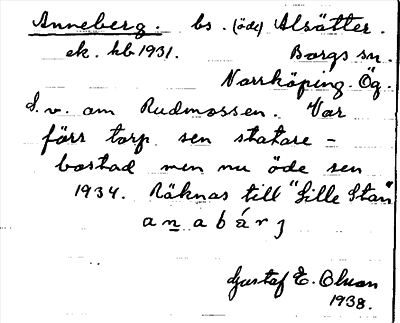 Anneberg. bs. (öde) Alsätter.
ek. hb 1931. Borgs sn.
Norrköping. Ög.
S. v. om Rudmossen. Var
förr torp sen statare-
bostad men nu öde sen
1934. Räknas till "Lille Stan"
anabárj
Gustaf E. Olson
1938.